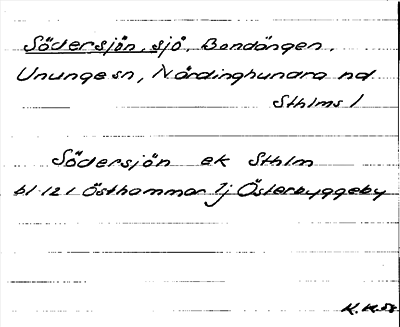 Södersjön, sjö, Bondängen,
Ununge sn, Närdinghundra hd
Sthlms l
Södersjön ek Sthlm
bl 121 Östhammar lj Österbyggeby
K.H.53